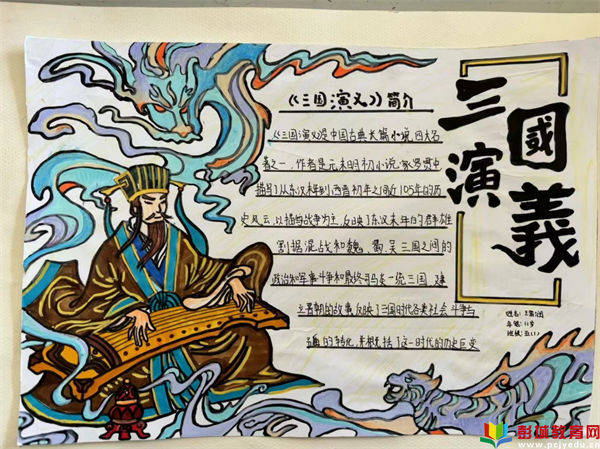 三國演義
《三国演义》简介
《三国演义》是中国古典长篇小说四大名
著之一，作者是元末明初小说家罗贯中
描写了从东汉末年到西晋初年之间近105年的历
史风云，以描写战争为主，反映了东汉末年的群雄
割据混战和魏、蜀、吴三国之间的
政治和军事斗争和最终司马炎一统三国，建
立晋朝的故事，反映了三国时代各类社会斗争与
的转化，并概括了这一时代的历史巨变
姓名：
年龄：11岁
班级：五(1)
彭城教育网
www.pcjyedu.cn